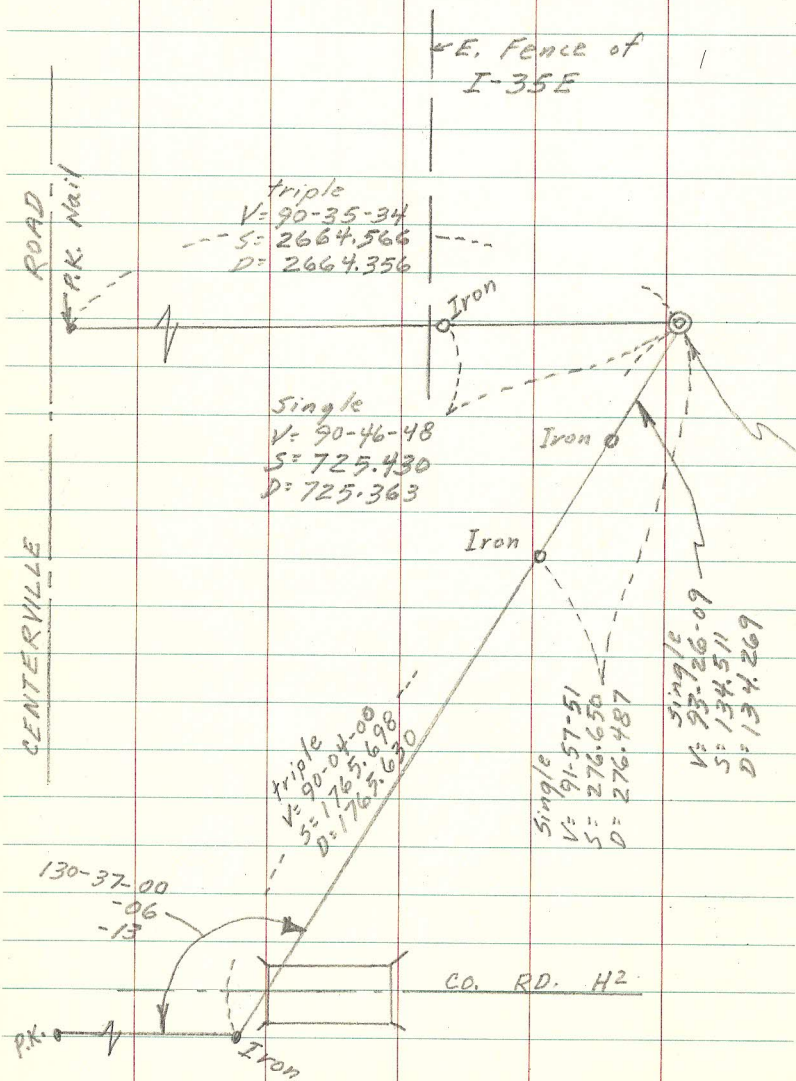 E. Fence of
I-35E
ROAD
P.K. Nail
triple
V= 90-35-34
S= 2664.566
D= 2664.356
Iron
Single
V= 90-46-48
S= 725.430
D= 725.363
Iron
Iron
CENTERVILLE
triple
V= 90-04-00
S= 1765.698
D= 1765.630
Single
V= 91-57-51
S= 276.650
D= 276.487
Single
V= 93-26-09
S= 134.511
D= 134.269
130-37-00
-06
-13
CO. RD. H2
P.K.
Iron